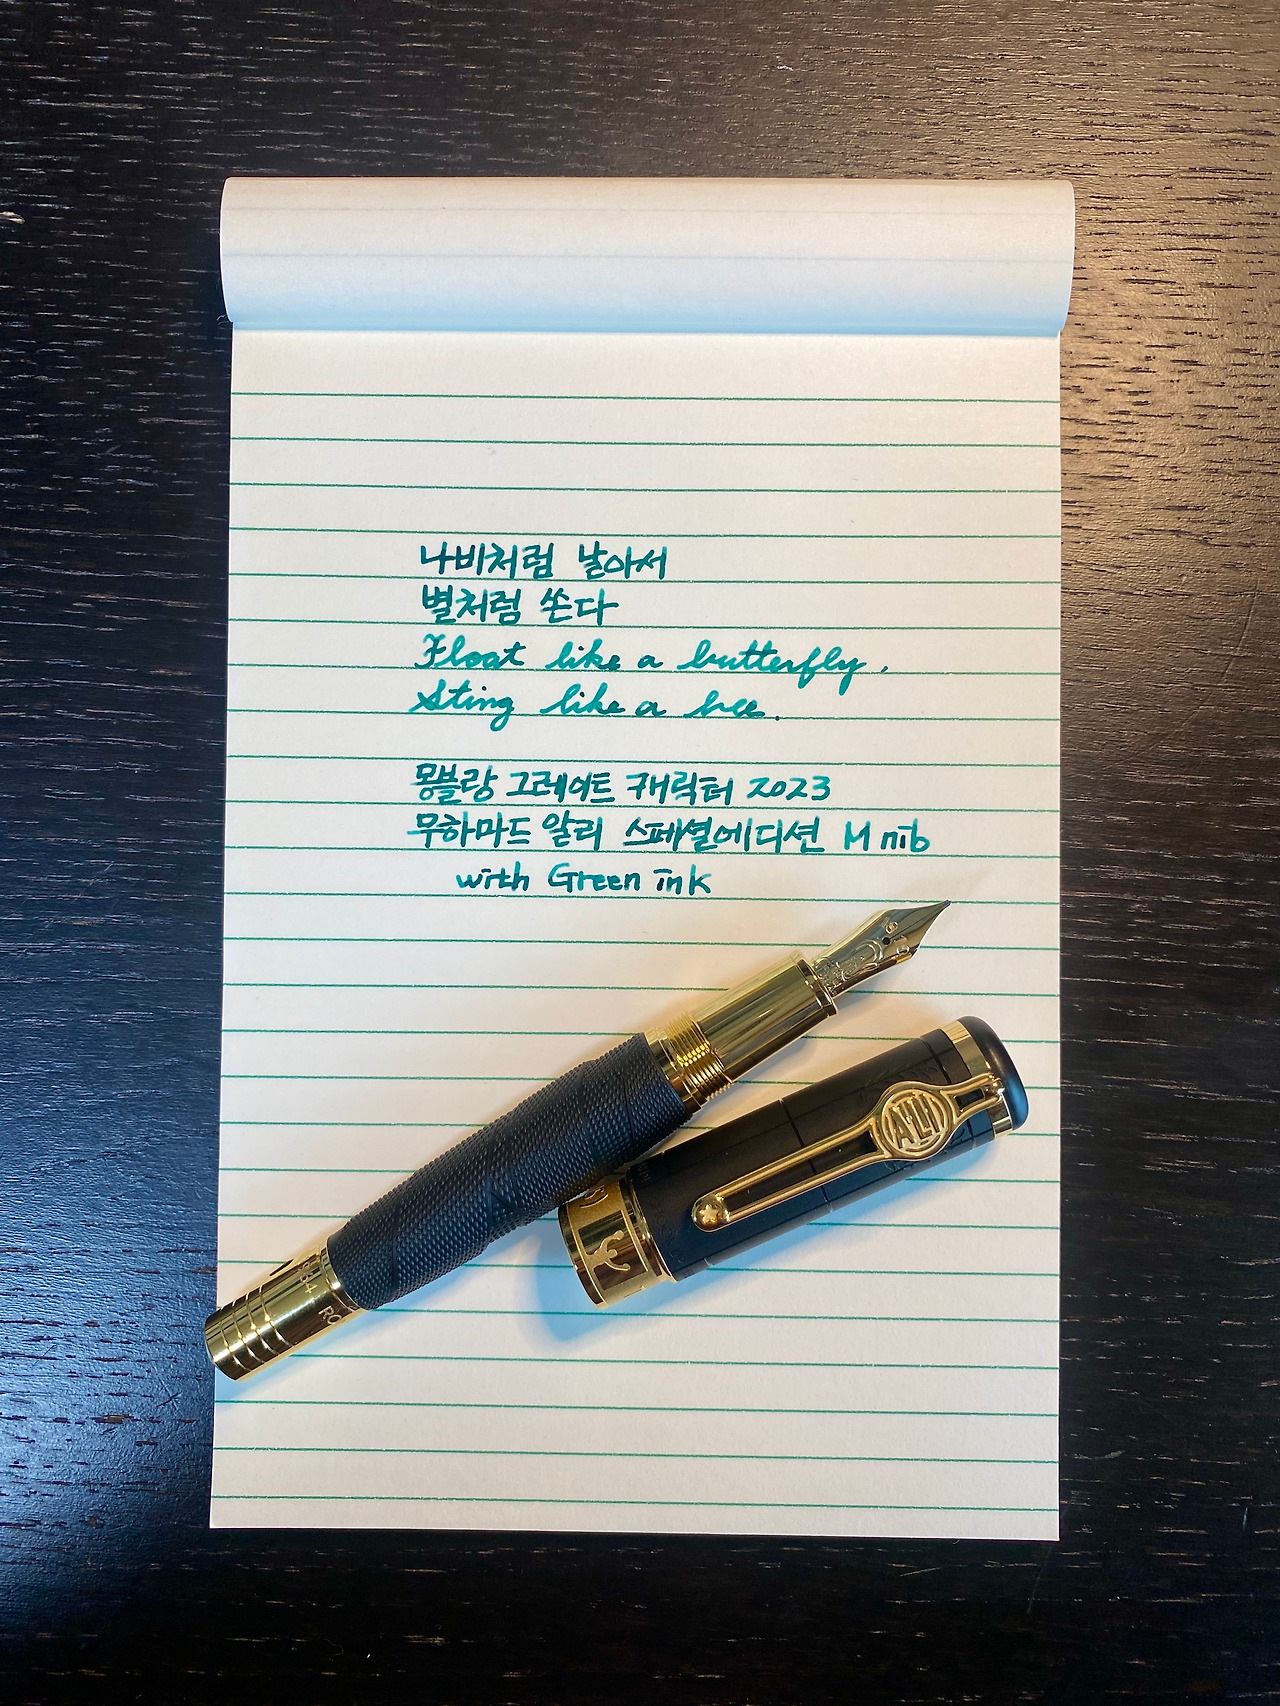 나비처럼 날아서
별처럼 쏜다
Float like a butterfly,
Sting like a bee.
몽블랑 그레이트 캐릭터 2023
무하마드 알리 스페셜에디션 M nib
with Green ink
ALI